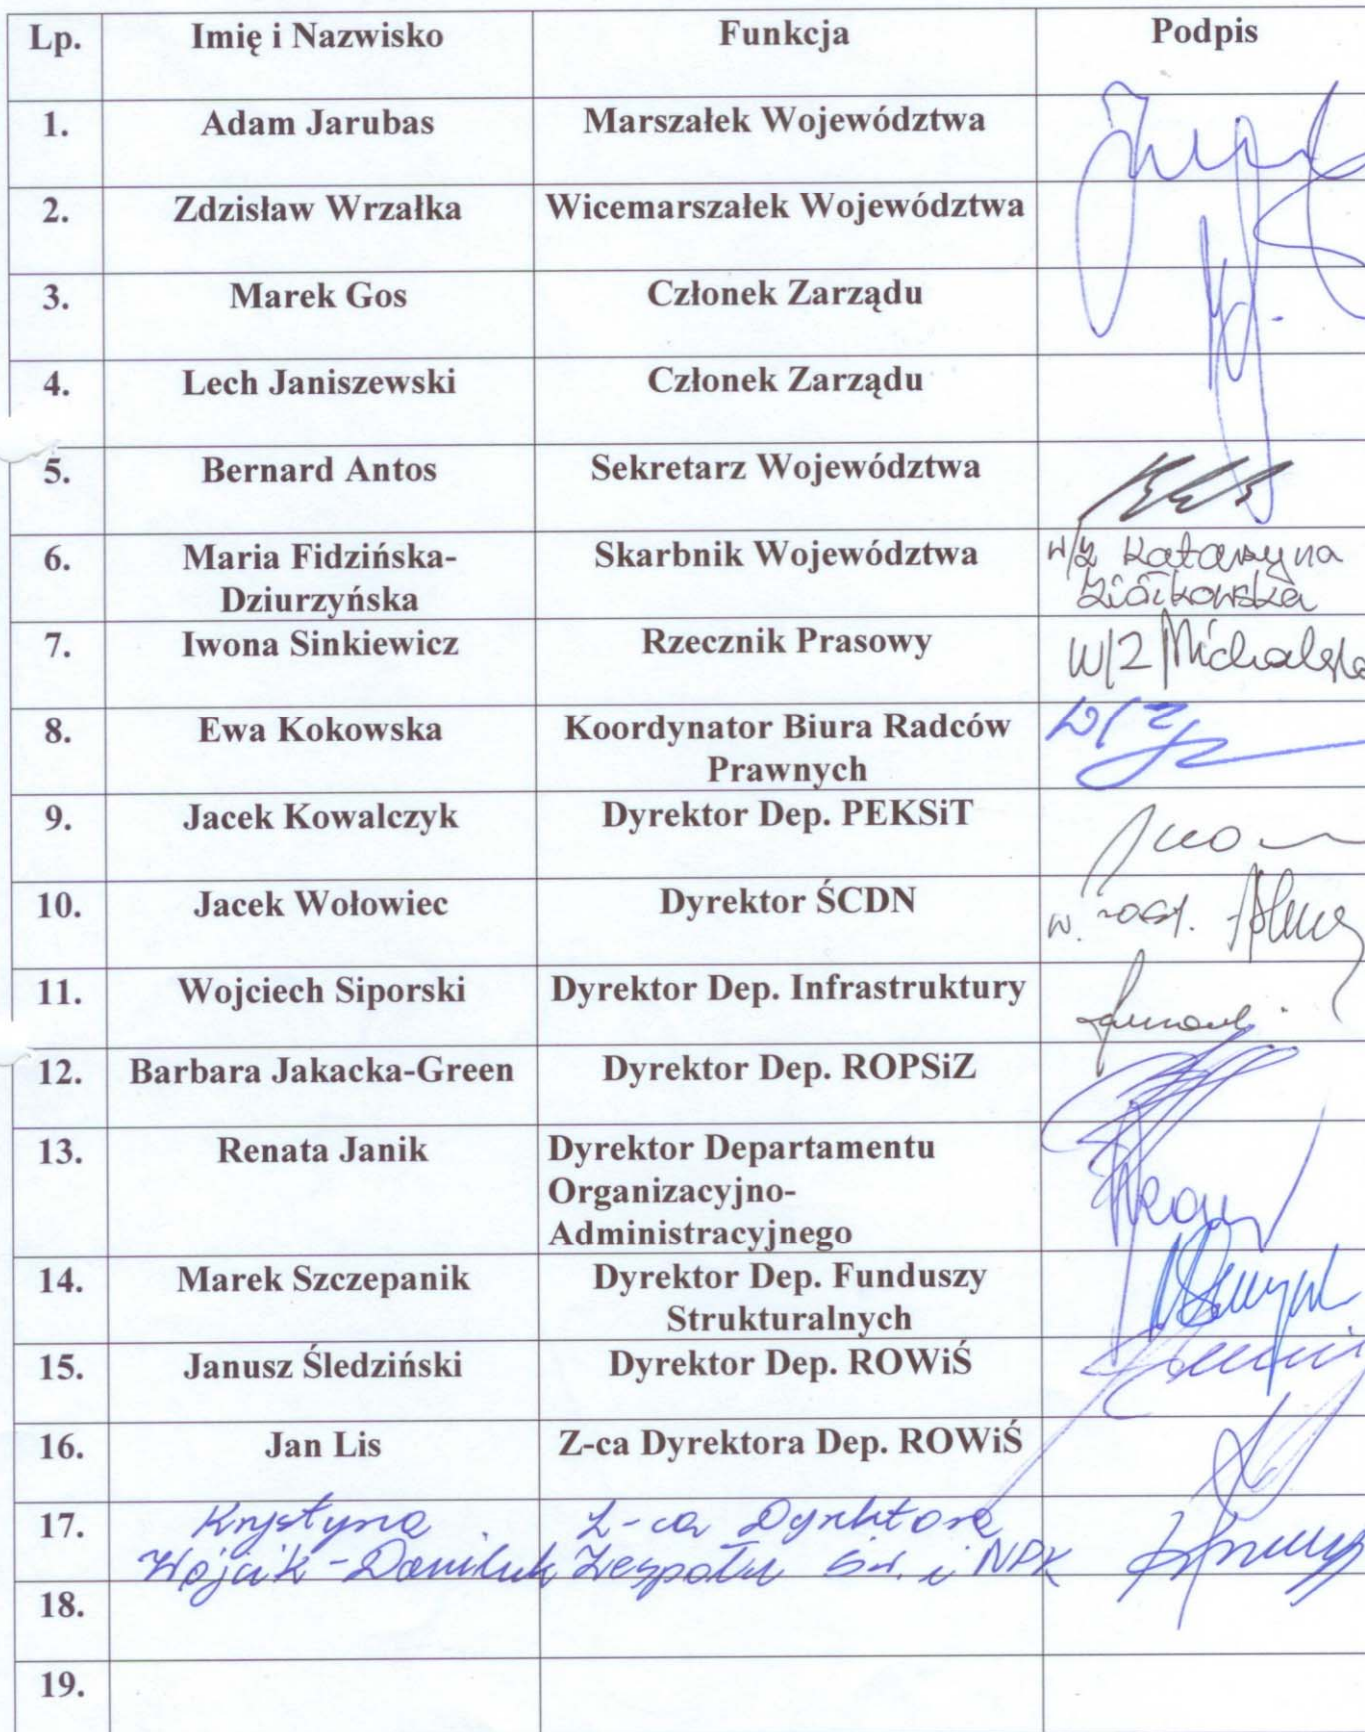 Lp. Imię i Nazwisko Funkcja Podpis
1. Adam Jarubas Marszałek Województwa
2. Zdzisław Wrzałka Wicemarszałek Województwa
3. Marek Gos Członek Zarządu
4. Lech Janiszewski Członek Zarządu
5. Bernard Antos Sekretarz Województwa
6. Maria Fidzińska- Skarbnik Województwa w/z Katarzyna
Dziurzyńska Ziółkowska
7. Iwona Sinkiewicz Rzecznik Prasowy W/Z Michalska
8. Ewa Kokowska Koordynator Biura Radców w/z
Prawnych
9. Jacek Kowalczyk Dyrektor Dep. PEKSiT
10. Jacek Wołowiec Dyrektor ŚCDN w. zast.
11. Wojciech Siporski Dyrektor Dep. Infrastruktury
12. Barbara Jakacka-Green Dyrektor Dep. ROPSiZ
13. Renata Janik Dyrektor Departamentu
Organizacyjno-
Administracyjnego
14. Marek Szczepanik Dyrektor Dep. Funduszy
Strukturalnych
15. Janusz Śledziński Dyrektor Dep. ROWiŚ
16. Jan Lis Z-ca Dyrektora Dep. ROWiŚ
17. Krystyna Z-ca Dyrektora
Wójcik-Daniluk Zespołu Św. i NPK
18.
19.